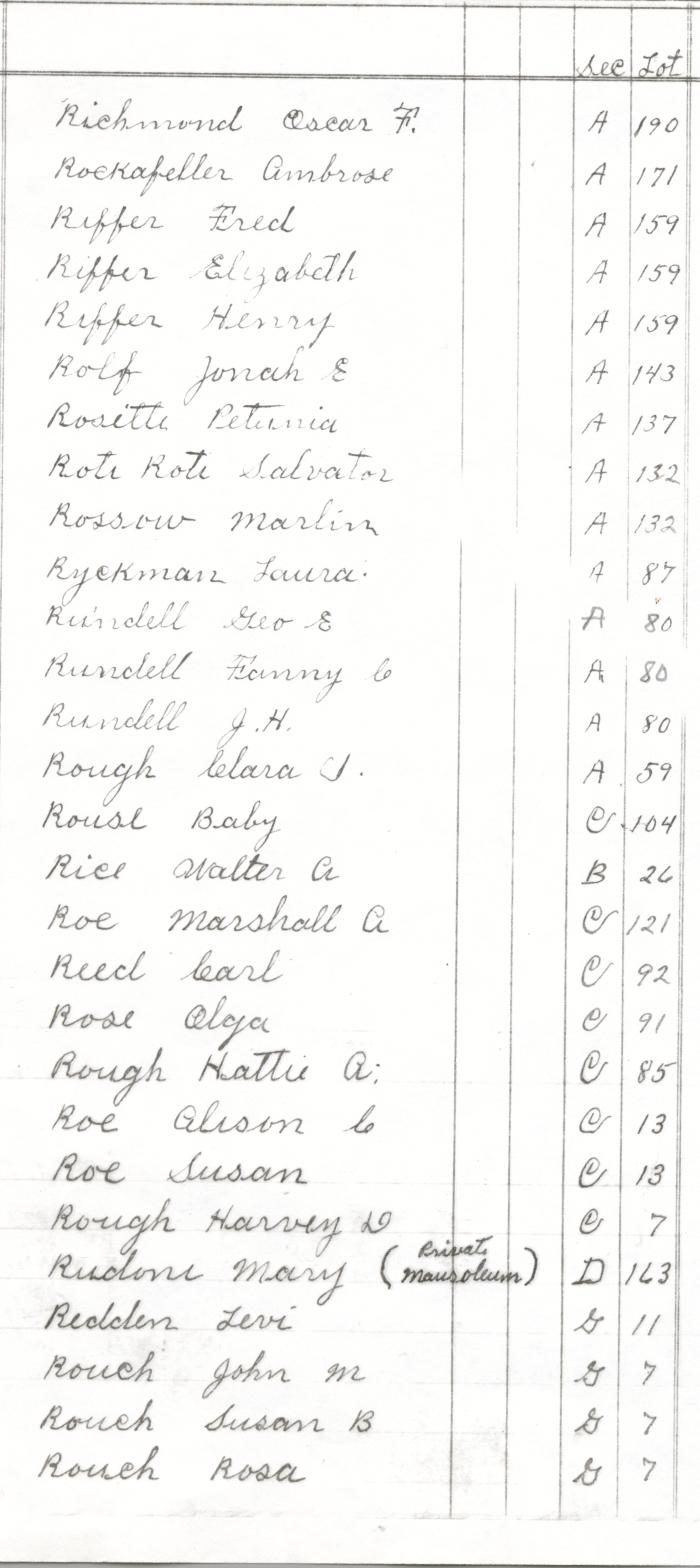 Sec Lot
Richmond Oscar F. A 190
Rockafeller Ambrose A 171
Riffer Fred A 159
Riffer Elizabeth A 159
Riffer Henry A 159
Rolf Jonah E A 143
Rosette Petunia A 137
Roti Roti Salvator A 132
Rossow Marlin A 132
Ryckman Laura A 87
Rundell Geo E A 80
Rundell Fanny C A 80
Rundell J.H. A 80
Rough Clara J. A 59
Rouse Baby C 104
Rice Walter A B 26
Roe Marshall A C 121
Reed Carl C 92
Rose Olga C 91
Rough Hattie A. C 85
Roe Alison C C 13
Roe Susan C 13
Rough Harvey D C 7
Rudoni Mary (Private Mausoleum) D 163
Redden Levi G 11
Rouch John M G 7
Rouch Susan B G 7
Rouch Rosa G 7